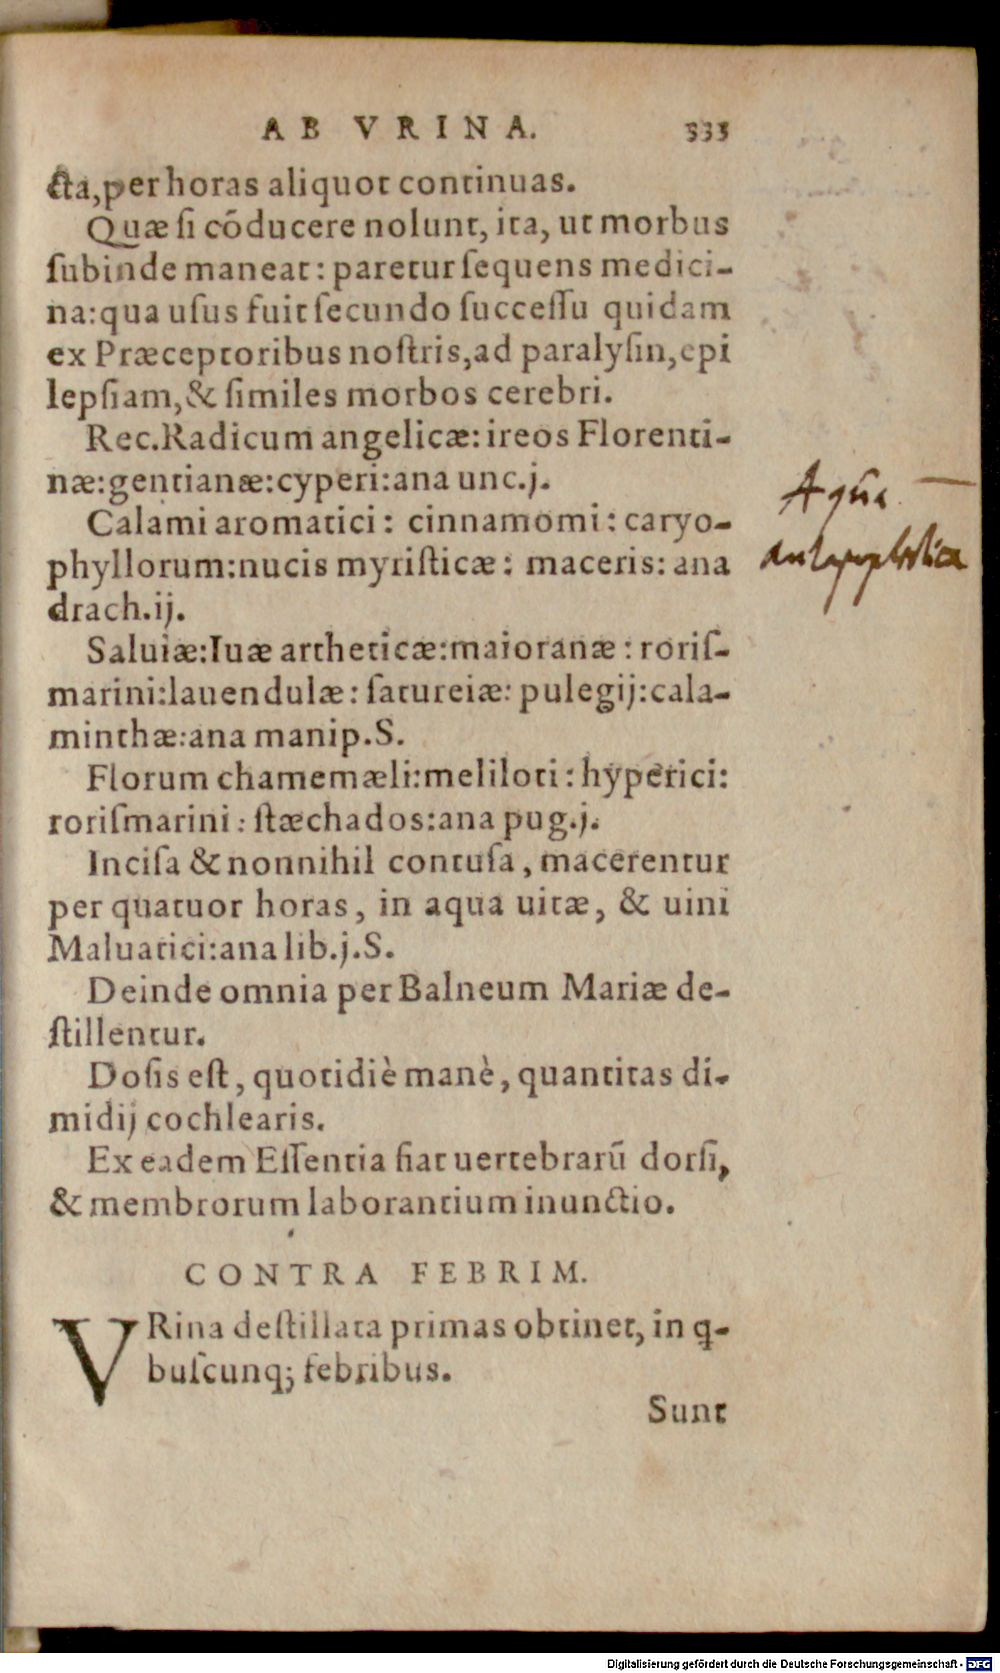 AB VRINA. 333
cta, per horas aliquot continuas.
Quæ ſi cõducere nolunt, ita, ut morbus
ſubinde maneat: paretur ſequens medici-
na: qua uſus fuit ſecundo ſucceſſu quidam
ex Præceptoribus noſtris, ad paralyſin, epi
lepſiam, & ſimiles morbos cerebri.
Rec. Radicum angelicæ: ireos Florenti-
næ: gentianæ: cyperi: ana unc.j.
Calami aromatici: cinnamomi: caryo-
phyllorum: nucis myriſticæ: maceris: ana
drach.ij.
Saluiæ: Iuæ artheticæ: maioranæ: roriſ-
marini: lauendulæ: ſatureiæ: pulegij: cala-
minthæ: ana manip.S.
Florum chamemæli: meliloti: hyperici:
roriſmarini: ſtæchados: ana pug.j.
Inciſa & nonnihil contuſa, macerentur
per quatuor horas, in aqua uitæ, & uini
Maluatici: ana lib.j.S.
Deinde omnia per Balneum Mariæ de-
ſtillentur.
Doſis eſt, quotidiè manè, quantitas di-
midij cochlearis.
Ex eadem Eſſentia fiat uertebrarũ dorſi,
& membrorum laborantium inunctio.
CONTRA FEBRIM.
VRina deſtillata primas obtinet, in q-
buſcunq; febribus.
Sunt
Aqũa
antapoplectica
Digitalisierung gefördert durch die Deutsche Forschungsgemeinschaft - DFG